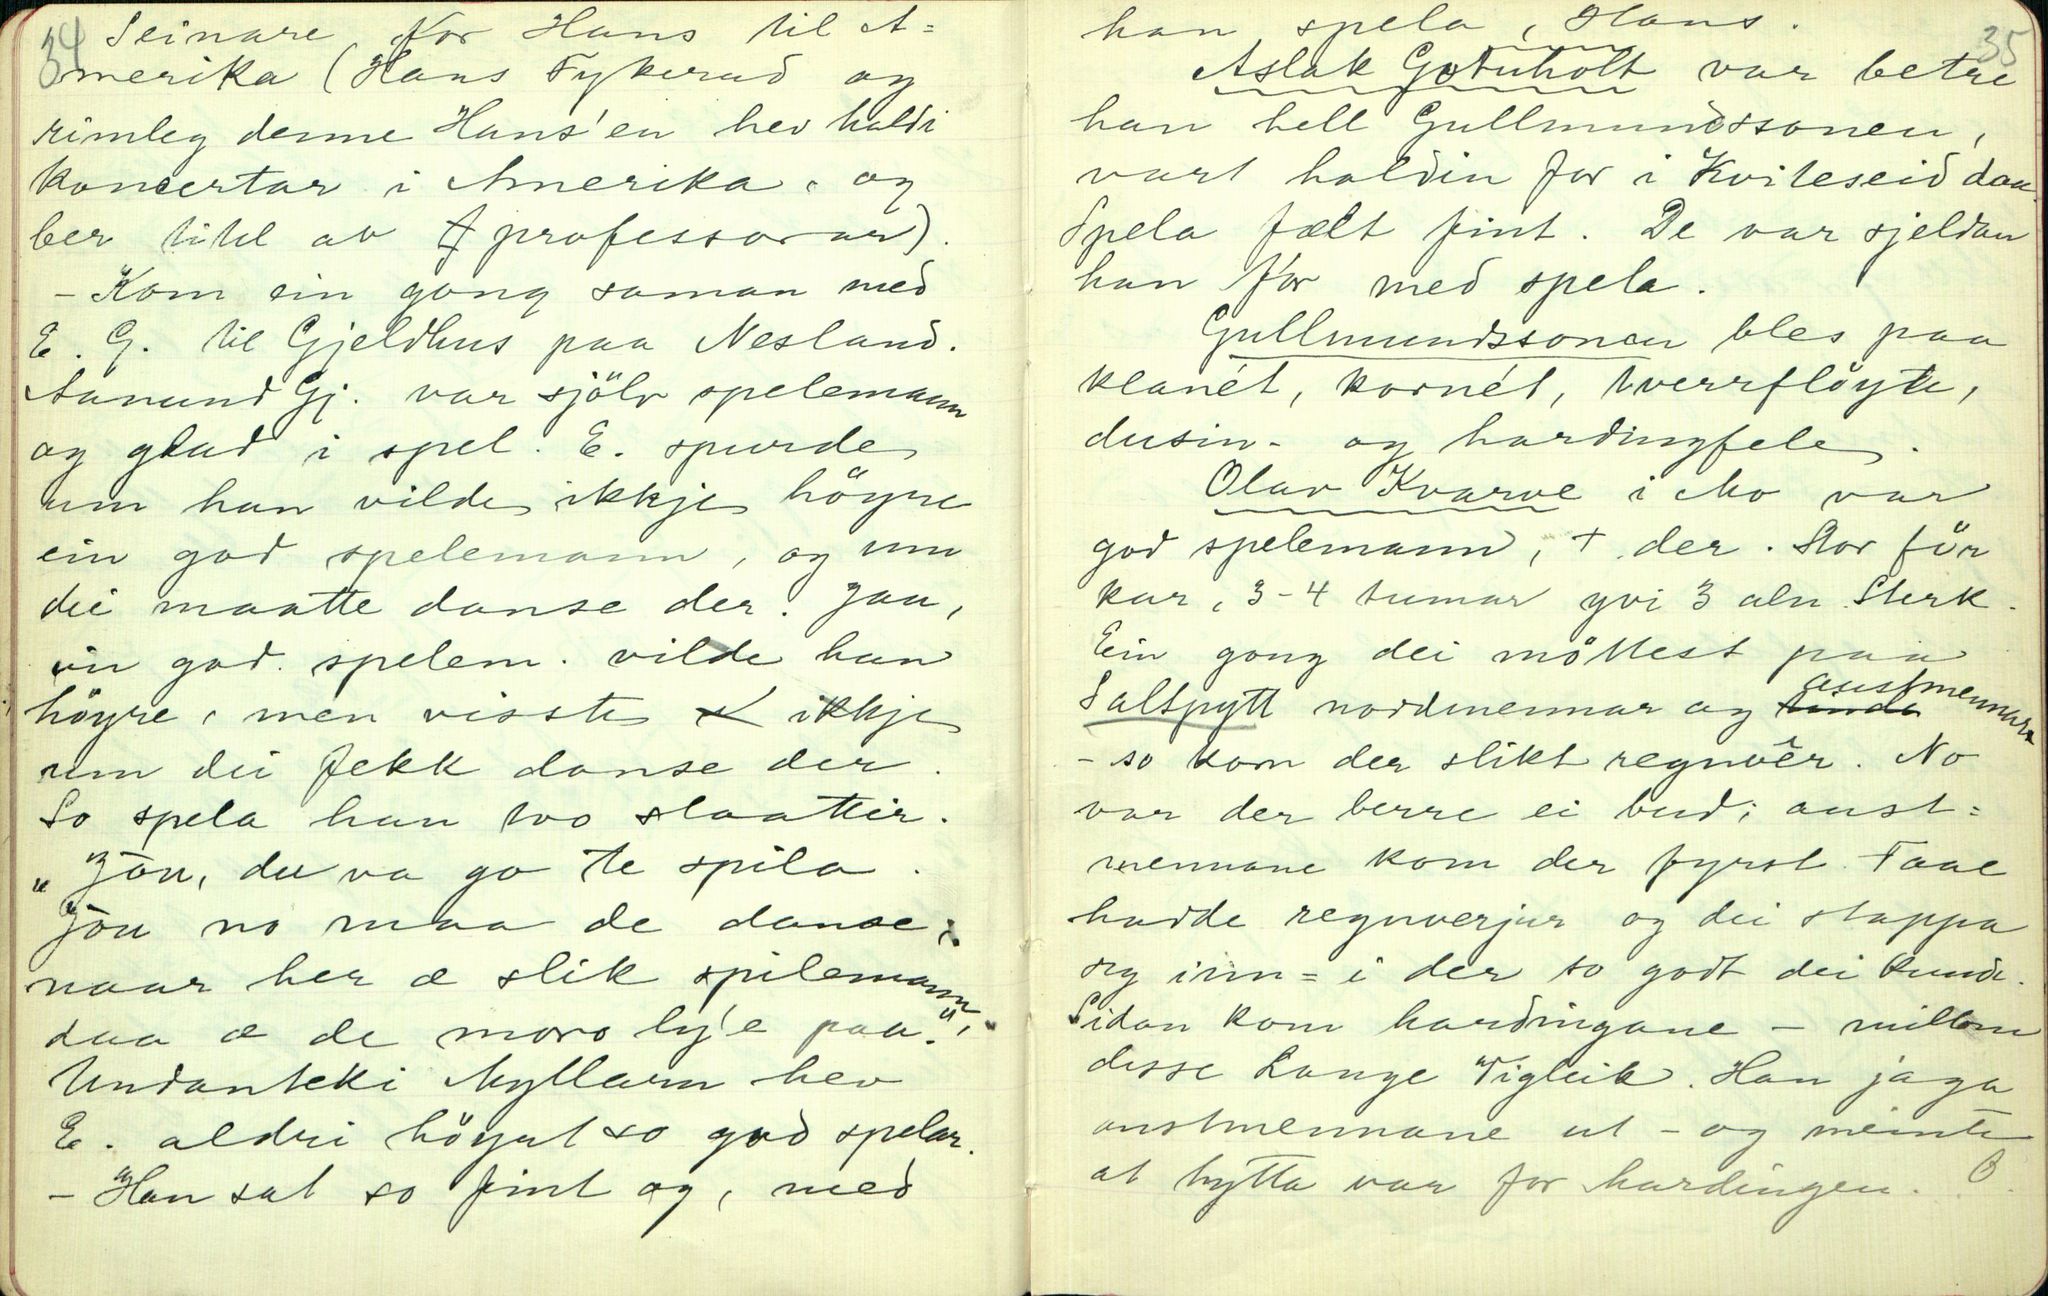 34
Seinare for Hans til A=
merika (Hans Fykerud og
rimleg denne Hans'en hev haldi
koncertar i Amerika, og
ber titel av professorar).
- Kom ein gong saman med
E. G. til Gjeldhus paa Nesland.
Aanund Gj. var sjölv spelemann
og glad i spel. E. spurde
um han vilde ikkje höyre
ein god spelemann, og um
dei maatte danse der. Jau,
ein god spelem. vilde han
höyre, men visste ikkje
um dei fekk danse der.
So spela han tvo slaattir.
"Jou, du va go te spila.
Jou no maa de danse,
naar her æ slik spilemann,
daa æ de moro ly'e paa."
Undanteki Myllarn hev
E. aldri höyrt so god spelar.
- Han sat so fint og, med
35
han spela, Hans.
Aslak Gotuholt var betre
han hell Gullmundssonen,
vart haldin for i Kviteseid daa.
Spela fælt fint. De var sjeldan
han for med spela.
Gullmundssonen bles paa
klanét, kornét, tverrflöyte,
dusin- og hardingfele.
Olav Kvarve i Mo var
god spelemann, + der. Stor för
kar, 3-4 tumar yvi 3 aln. Sterk.
Ein gong dei möttest paa
Saltpytt nordmennar og austmennar
- so kom der slikt regnvêr. No
var der berre ei bud; aust=
mennane kom der fyrst. Faae
hadde regnverjur og dei stappa
seg inn=i der so godt dei kunde.
Sidan kom hardingane - millom
desse Lange Vigleik. Han jaga
austmennane ut - og meinte
at hytta var for hardingen. O.